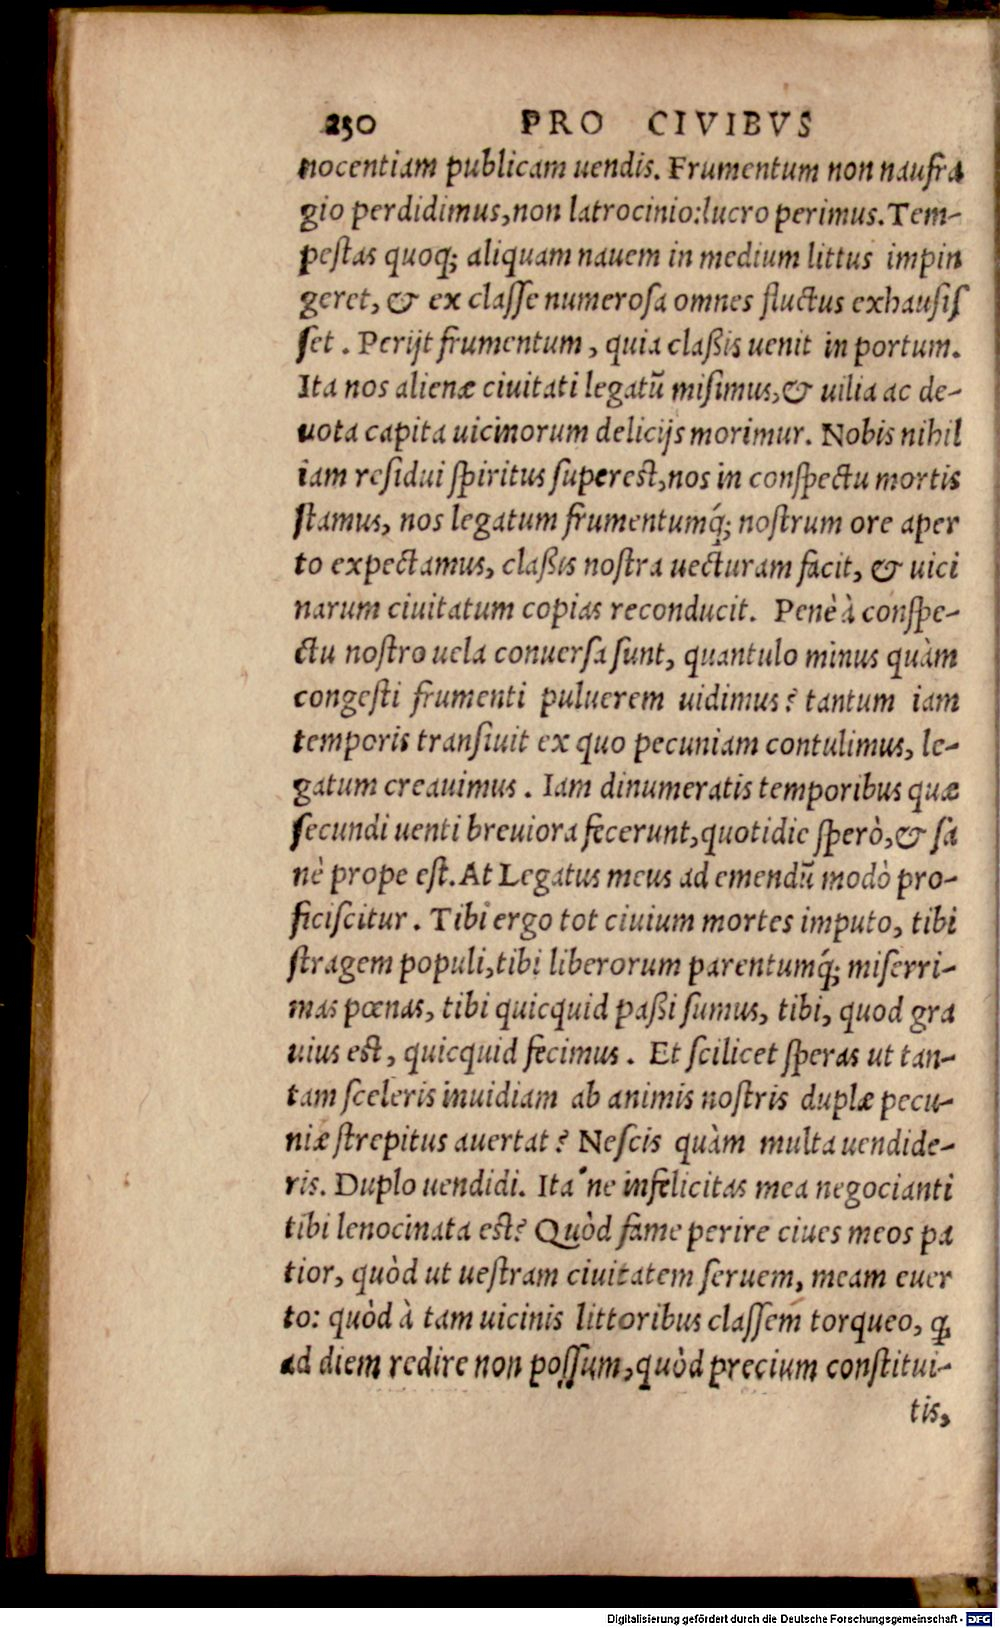 250 PRO CIVIBVS
nocentiam publicam uendis. Frumentum non naufra
gio perdidimus, non latrocinio: lucro perimus. Tem-
pestas quoq; aliquam nauem in medium littus impin
geret, & ex classe numerosa omnes fluctus exhausis
set. Perijt frumentum, quia claßis uenit in portum.
Ita nos alienæ ciuitati legatū misimus, & uilia ac de-
uota capita uicinorum delicijs morimur. Nobis nihil
iam residui spiritus superest, nos in conspectu mortis
stamus, nos legatum frumentumq́; nostrum ore aper
to expectamus, claßis nostra uecturam facit, & uici
narum ciuitatum copias reconducit. Penè à conspe-
ctu nostro uela conuersa sunt, quantulo minus quàm
congesti frumenti puluerem uidimus? tantum iam
temporis transiuit ex quo pecuniam contulimus, le-
gatum creauimus. Iam dinumeratis temporibus quæ
secundi uenti breuiora fecerunt, quotidie sperò, & sa
nè prope est. At Legatus meus ad emendū modò pro-
ficiscitur. Tibi ergo tot ciuium mortes imputo, tibi
stragem populi, tibi liberorum parentumq́; miserri-
mas pœnas, tibi quicquid paßi sumus, tibi, quod gra
uius est, quicquid fecimus. Et scilicet speras ut tan-
tam sceleris inuidiam ab animis nostris duplæ pecu-
niæ strepitus auertat? Nescis quàm multa uendide-
ris. Duplo uendidi. Ita'ne infelicitas mea negocianti
tibi lenocinata est? Quòd fame perire ciues meos pa
tior, quòd ut uestram ciuitatem seruem, meam euer
to: quòd à tam uicinis littoribus classem torqueo, ꝗ
ad diem redire non possum, quòd precium constitui-
tis,
Digitalisierung gefördert durch die Deutsche Forschungsgemeinschaft - DFG